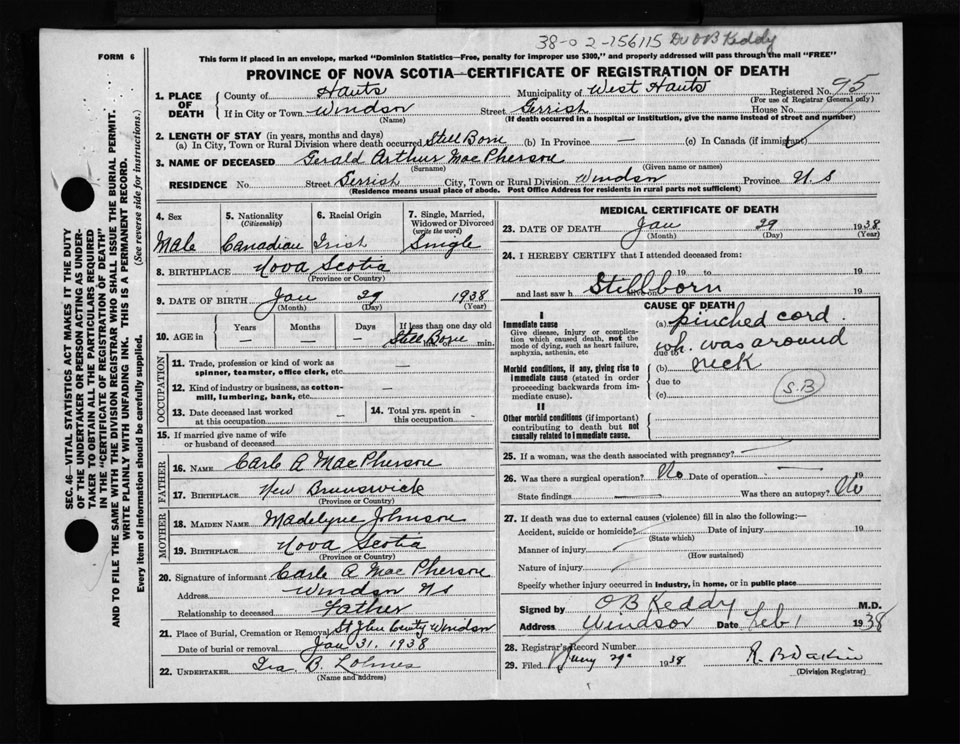 38-02-156115 Dr OB Keddy
FORM 6
This form if placed in an envelope, marked "Dominion Statistics—Free, penalty for improper use $300," and properly addressed will pass through the mail "FREE"
PROVINCE OF NOVA SCOTIA—CERTIFICATE OF REGISTRATION OF DEATH
SEC. 46—VITAL STATISTICS ACT MAKES IT THE DUTY
OF THE UNDERTAKER OR PERSON ACTING AS UNDER-
TAKER TO OBTAIN ALL THE PARTICULARS REQUIRED
IN THE "CERTIFICATE OF REGISTRATION OF DEATH"
AND TO FILE THE SAME WITH THE DIVISION REGISTRAR WHO SHALL ISSUE THE BURIAL PERMIT.
WRITE PLAINLY WITH UNFADING INK. THIS IS A PERMANENT RECORD.
Every item of information should be carefully supplied. (See reverse side for instructions.)
1. PLACE OF DEATH
County of Hants Municipality of West Hants Registered No. 95
(For use of Registrar General only)
If in City or Town Windsor Street Gerrish House No.
(Name) (If death occurred in a hospital or institution, give the name instead of street and number)
2. LENGTH OF STAY (in years, months and days)
(a) In City, Town or Rural Division where death occurred Still Born (b) In Province — (c) In Canada (if immigrant)
3. NAME OF DECEASED Gerald Arthur MacPherson
(Surname) (Given name or names)
RESIDENCE No. Street Gerrish City, Town or Rural Division Windsor Province N S
(Residence means usual place of abode. Post Office Address for residents in rural parts not sufficient)
4. Sex Male
5. Nationality (Citizenship) Canadian
6. Racial Origin Irish
7. Single, Married, Widowed or Divorced (write the word) Single
8. BIRTHPLACE Nova Scotia
(Province or Country)
9. DATE OF BIRTH Jan 29 1938
(Month) (Day) (Year)
10. AGE in Years — Months — Days — If less than one day old Still Born hrs. or min.
OCCUPATION
11. Trade, profession or kind of work as spinner, teamster, office clerk, etc. —
12. Kind of industry or business, as cotton-mill, lumbering, bank, etc. —
13. Date deceased last worked at this occupation —
14. Total yrs. spent in this occupation —
15. If married give name of wife or husband of deceased
FATHER
16. NAME Carle A MacPherson
17. BIRTHPLACE New Brunswick
(Province or Country)
MOTHER
18. MAIDEN NAME Madelyne Johnson
19. BIRTHPLACE Nova Scotia
(Province or Country)
20. Signature of informant Carle A MacPherson
Address Windsor NS
Relationship to deceased Father
21. Place of Burial, Cremation or Removal St John Windsor
Date of burial or removal Jan 31. 1938
22. UNDERTAKER Ira B.
(Name and address)
MEDICAL CERTIFICATE OF DEATH
23. DATE OF DEATH Jan 29 1938
(Month) (Day) (Year)
24. I HEREBY CERTIFY that I attended deceased from:
19 to 19
and last saw h Stillborn alive on 19
CAUSE OF DEATH
I
Immediate cause
Give disease, injury or complication which caused death, not the mode of dying, such as heart failure, asphyxia, asthenia, etc
(a) pinched cord.
due to wh. was around
Morbid conditions, if any, giving rise to immediate cause (stated in order proceeding backwards from immediate cause).
(b) neck
due to
(c) S.B
II
Other morbid conditions (if important) contributing to death but not causally related to immediate cause.
25. If a woman, was the death associated with pregnancy? —
26. Was there a surgical operation? No Date of operation — 19
State findings — Was there an autopsy? No
27. If death was due to external causes (violence) fill in also the following:—
Accident, suicide or homicide? Date of injury 19
(State which)
Manner of injury
(How sustained)
Nature of injury
Specify whether injury occurred in industry, in home, or in public place
Signed by OB Keddy M.D.
Address Windsor Date Feb 1 1938
28. Registrar's Record Number
29. Filed 29 1938
(Division Registrar)